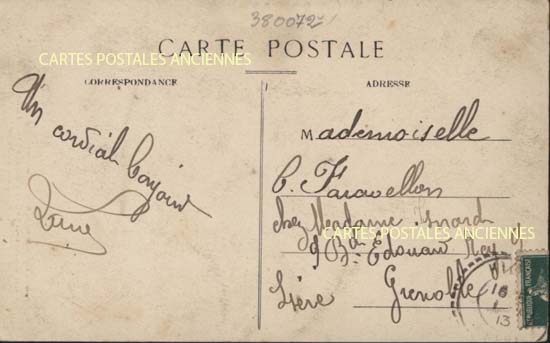 380072
CARTE POSTALE
CARTES POSTALES ANCIENNES
CORRESPONDANCE
ADRESSE
Un cordial bonjour
Mademoiselle
C. Faravellon
chez Madame
9 Bd Edouard Rey
CARTES POSTALES ANCIENNES
Grenoble
Isère
13
REPUBLIQUE FRANÇAISE